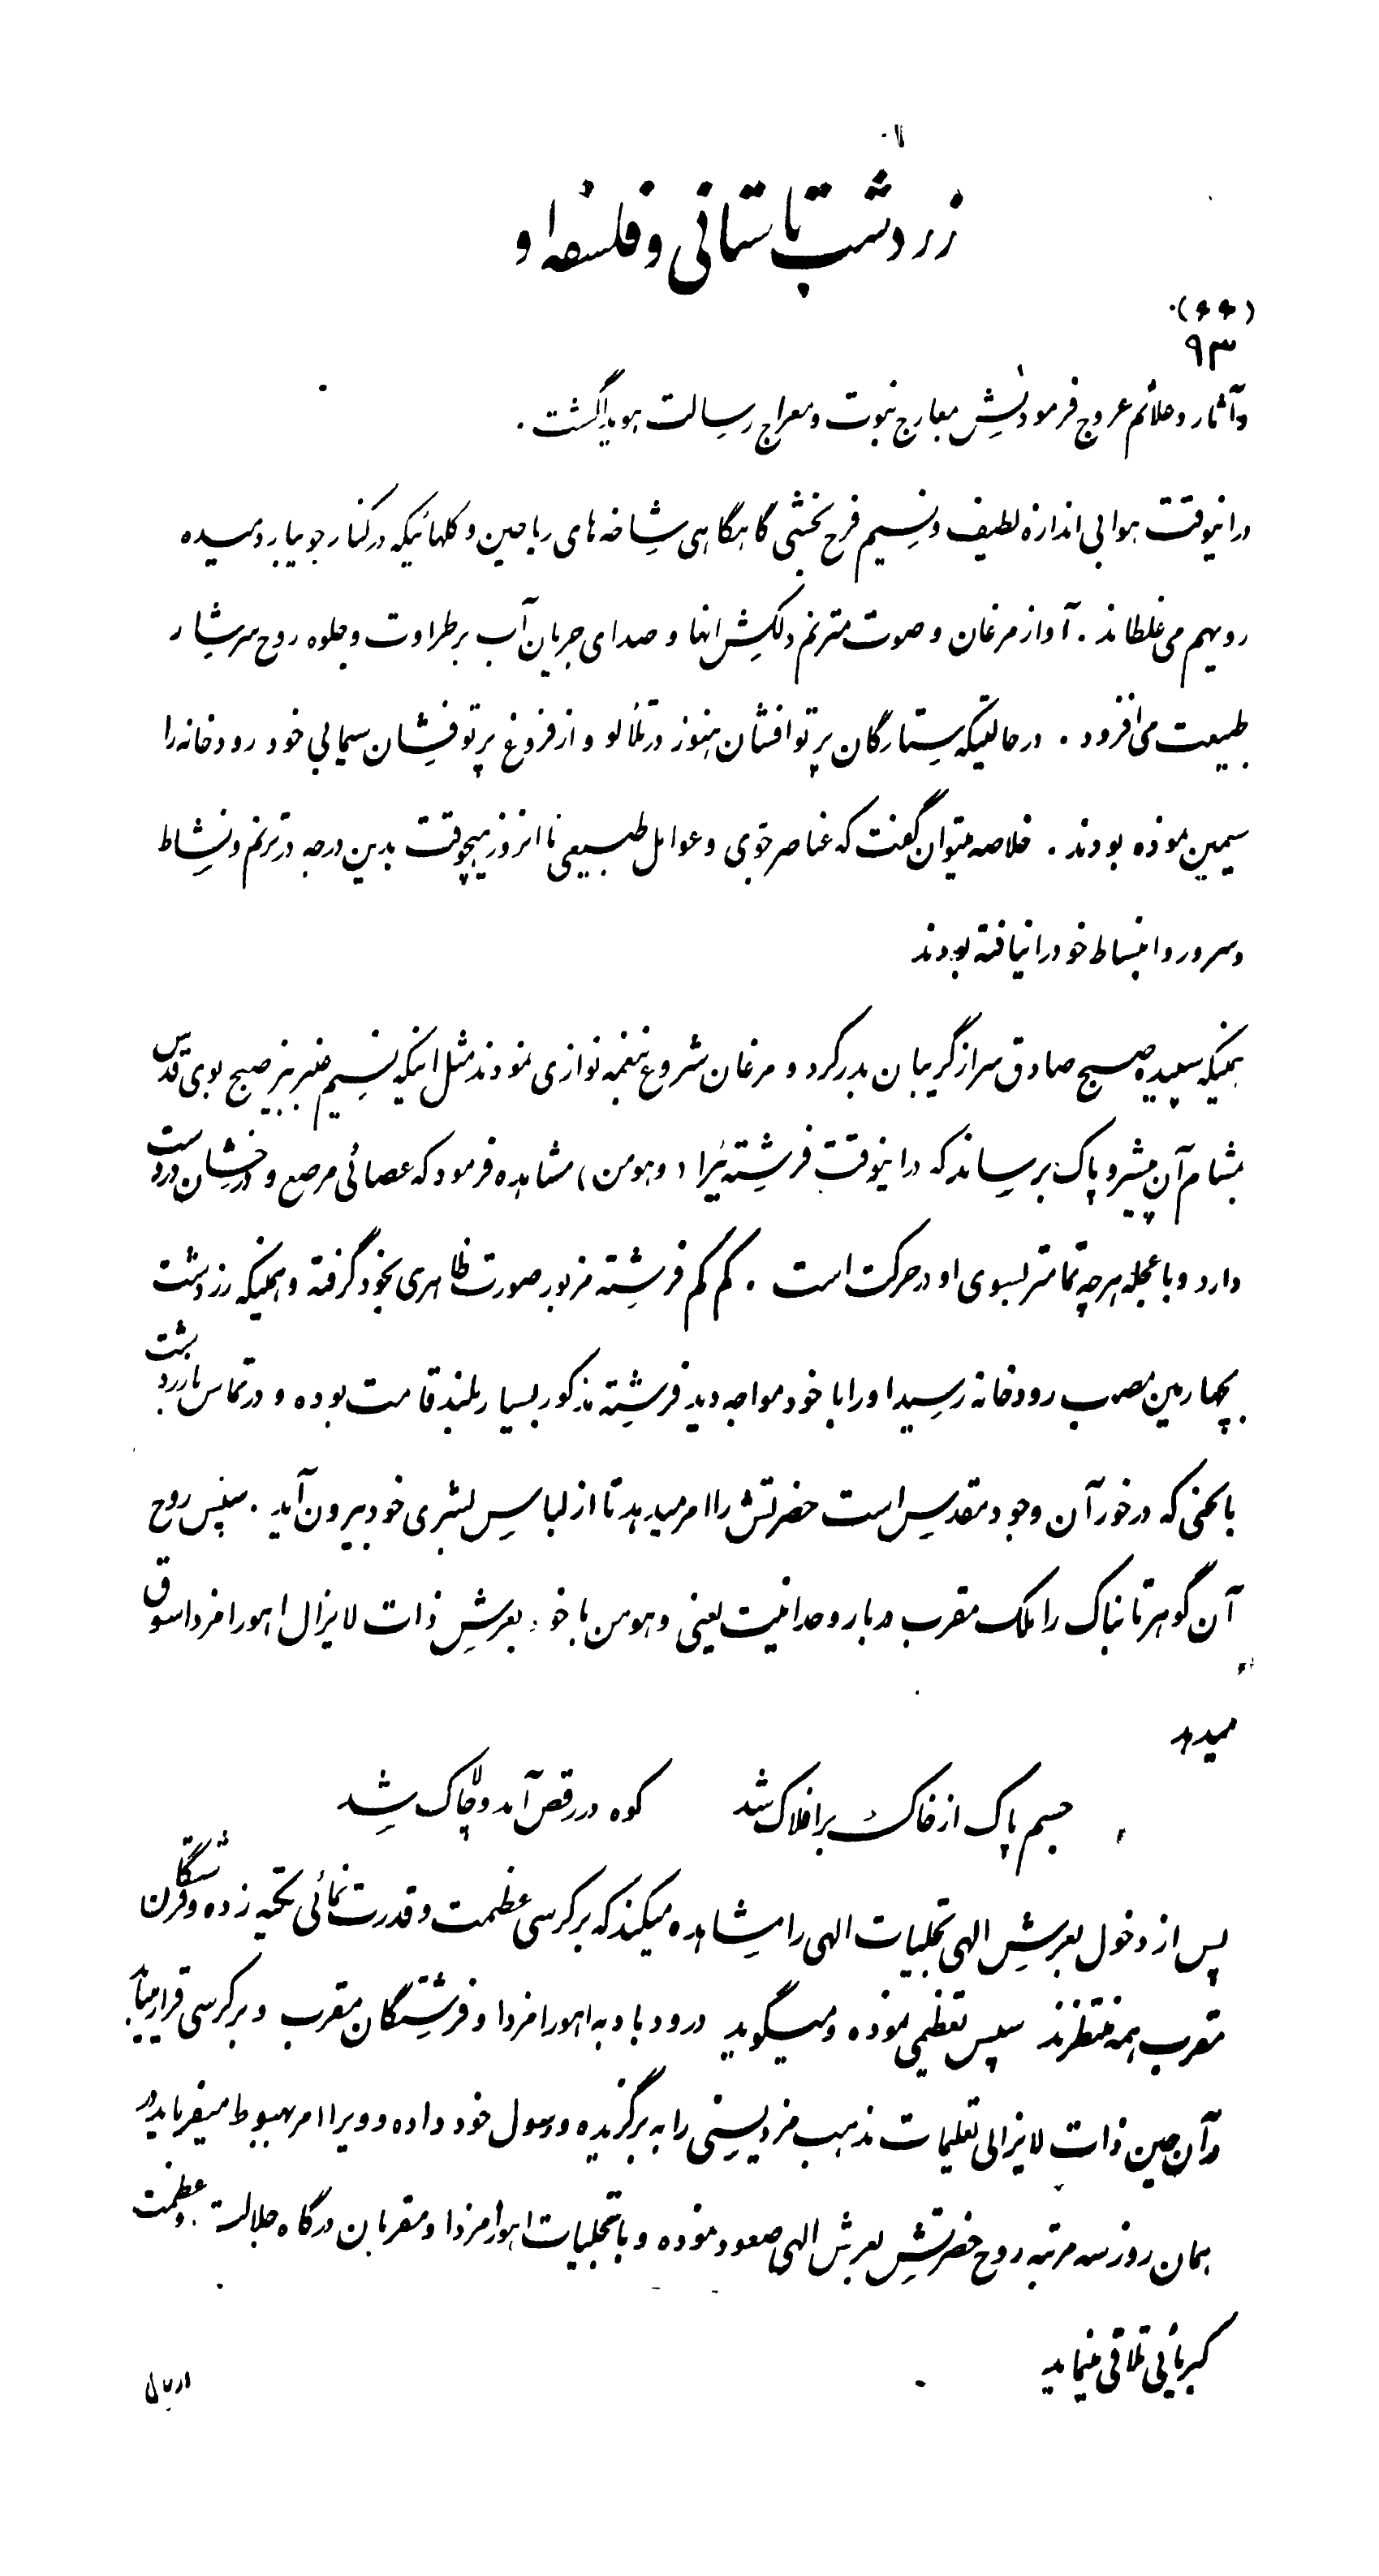 زردشت باستانی و فلسفه او
(۶۶)
۹۳
و آثار و علائم عروج فرمودنش بمعارج نبوت و معراج رسالت هویدا گشت .
در اینوقت هوا بی اندازه لطیف و نسیم فرح بخشی گاهگاهی شاخه های ریاحین و گلهائیکه در کنار جویبار دمیده
رویهم می غلطاند . آواز مرغان و صوت مترنم دلکش انها و صدای جریان آب بر طراوت و جلوه روح سرشار
طبیعت می افزود . در حالتیکه ستارگان پرتو افشان هنوز در تلألو و از فروغ پرتو فشان سیمابی خود رودخانه را
سیمین نموده بودند . خلاصه میتوان گفت که عناصر جوی و عوامل طبیعی تا انروز هیچوقت بدین درجه در ترنم و نشاط
و سرور و انبساط خود را نیافته بودند
همینکه سپیده صبح صادق سر از گریبان بدر کرد و مرغان شروع بنغمه نوازی نمودند مثل اینکه نسیم عنبر بیز صبح بوی قدس
بمشام آن پیشرو پاک برساند که در اینوقت فرشته ئیرا (وهومن) مشاهده فرمود که عصائی مرصع و درخشان در دست
دارد و با عجله هر چه تمامتر بسوی او در حرکت است . کم کم فرشته مزبور صورت ظاهری بخود گرفته و همینکه زردشت
بچهارمین مصب رودخانه رسید او را با خود مواجه دید فرشته مذکور بسیار بلند قامت بوده و در تماس با زردشت
بالحنی که در خور آن وجود مقدس است حضرتش را امر میدهد تا از لباس بشری خود بیرون آید . سپس روح
آن گوهر تابناک را ملک مقرب دربار وحدانیت یعنی وهومن با خود بعرش ذات لایزال اهورامزدا سوق
میدهد
جسم پاک از خاک بر افلاک شد کوه در رقص آمد و چالاک شد
پس از دخول بعرش الهی تجلیات الهی را مشاهده میکند که بر کرسی عظمت و قدرت نمائی تکیه زده و فرشتگان
مقرب همه منتظرند سپس تعظیمی نموده و میگوید درود باد به اهورامزدا و فرشتگان مقرب و بر کرسی قرار مییابد
در آن حین ذات لایزالی تعلیمات مذهب مزدیسنی را به برگزیده و رسول خود داده و ویرا امر بهبوط میفرماید در
همان روز سه مرتبه روح حضرتش بعرش الهی صعود نموده و با تجلیات اهورامزدا و مقربان درگاه جلالت و عظمت
کبریائی تلاقی مینماید